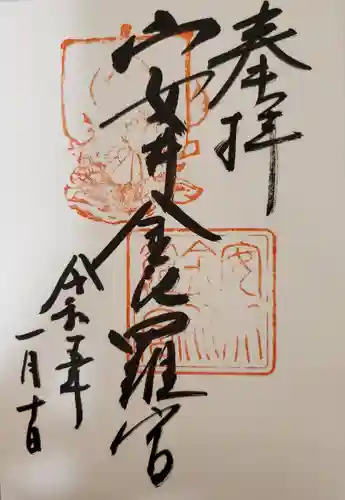 奉拝
安井金比羅宮
令和五年
一月十日